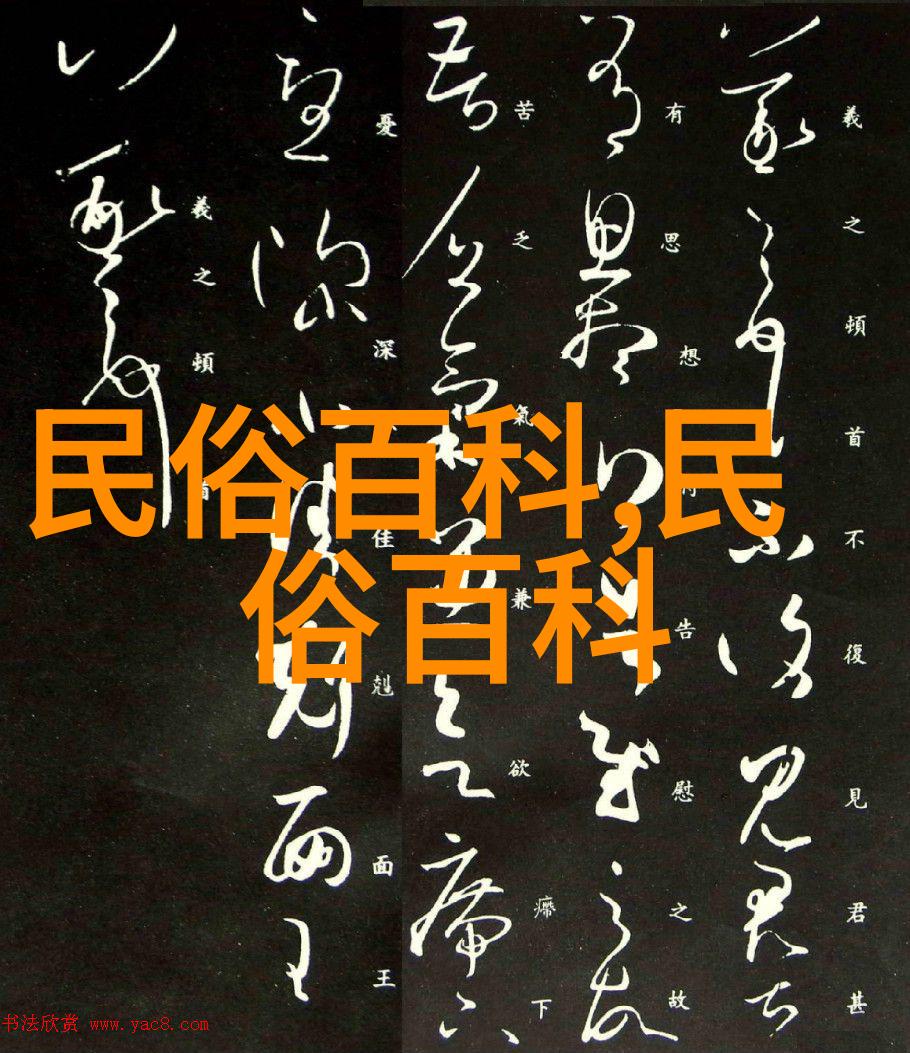 羲之頓首不復見君甚
有思想告慰之故
苦乏氣兼欲下
憂深佳剋面王
羲之頓首
民俗百科,民
俗百科
书法欣赏 www.yac8.com